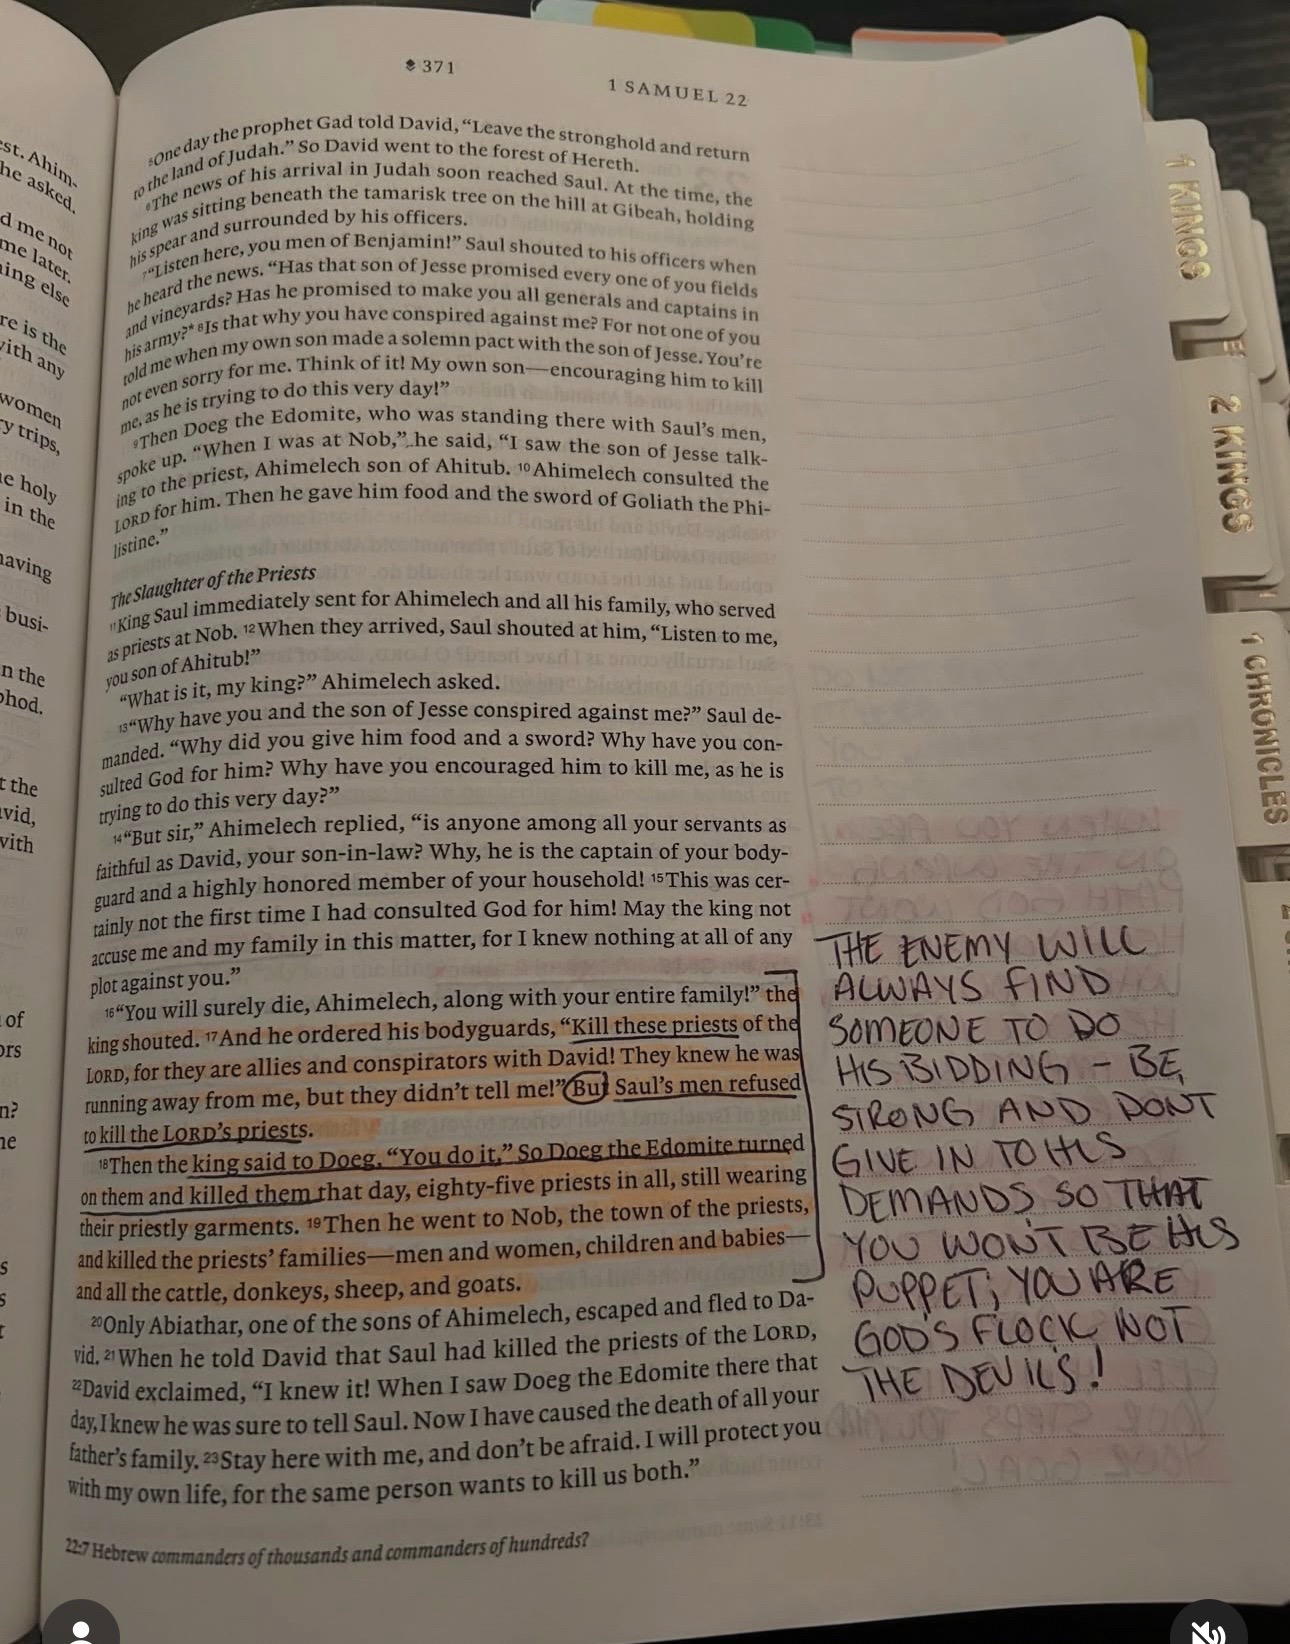 371
1 SAMUEL 22
5One day the prophet Gad told David, “Leave the stronghold and return
to the land of Judah.” So David went to the forest of Hereth.
6The news of his arrival in Judah soon reached Saul. At the time, the
king was sitting beneath the tamarisk tree on the hill at Gibeah, holding
his spear and surrounded by his officers.
7“Listen here, you men of Benjamin!” Saul shouted to his officers when
he heard the news. “Has that son of Jesse promised every one of you fields
and vineyards? Has he promised to make you all generals and captains in
his army?* 8Is that why you have conspired against me? For not one of you
told me when my own son made a solemn pact with the son of Jesse. You’re
not even sorry for me. Think of it! My own son—encouraging him to kill
me, as he is trying to do this very day!”
9Then Doeg the Edomite, who was standing there with Saul’s men,
spoke up. “When I was at Nob,” he said, “I saw the son of Jesse talk-
ing to the priest, Ahimelech son of Ahitub. 10Ahimelech consulted the
LORD for him. Then he gave him food and the sword of Goliath the Phi-
listine.”
The Slaughter of the Priests
11King Saul immediately sent for Ahimelech and all his family, who served
as priests at Nob. 12When they arrived, Saul shouted at him, “Listen to me,
you son of Ahitub!”
“What is it, my king?” Ahimelech asked.
13“Why have you and the son of Jesse conspired against me?” Saul de-
manded. “Why did you give him food and a sword? Why have you con-
sulted God for him? Why have you encouraged him to kill me, as he is
trying to do this very day?”
14“But sir,” Ahimelech replied, “is anyone among all your servants as
faithful as David, your son-in-law? Why, he is the captain of your body-
guard and a highly honored member of your household! 15This was cer-
tainly not the first time I had consulted God for him! May the king not
accuse me and my family in this matter, for I knew nothing at all of any
plot against you.”
16“You will surely die, Ahimelech, along with your entire family!” the
king shouted. 17And he ordered his bodyguards, “Kill these priests of the
LORD, for they are allies and conspirators with David! They knew he was
running away from me, but they didn’t tell me!” But Saul’s men refused
to kill the LORD’s priests.
18Then the king said to Doeg, “You do it.” So Doeg the Edomite turned
on them and killed them that day, eighty-five priests in all, still wearing
their priestly garments. 19Then he went to Nob, the town of the priests,
and killed the priests’ families—men and women, children and babies—
and all the cattle, donkeys, sheep, and goats.
20Only Abiathar, one of the sons of Ahimelech, escaped and fled to Da-
vid. 21When he told David that Saul had killed the priests of the LORD,
22David exclaimed, “I knew it! When I saw Doeg the Edomite there that
day, I knew he was sure to tell Saul. Now I have caused the death of all your
father’s family. 23Stay here with me, and don’t be afraid. I will protect you
with my own life, for the same person wants to kill us both.”
22:7 Hebrew commanders of thousands and commanders of hundreds?
THE ENEMY WILL
ALWAYS FIND
SOMEONE TO DO
HIS BIDDING – BE
STRONG AND DONT
GIVE IN TO HIS
DEMANDS SO THAT
YOU WON'T BE HIS
PUPPET; YOU ARE
GOD'S FLOCK NOT
THE DEVILS!
1 KINGS
2 KINGS
1 CHRONICLES
est. Ahim-
he asked.
d me not
me later.
ing else
re is the
with any
women
y trips,
e holy
in the
having
busi-
n the
hod.
t the
vid,
with
of
ors
n?
ne